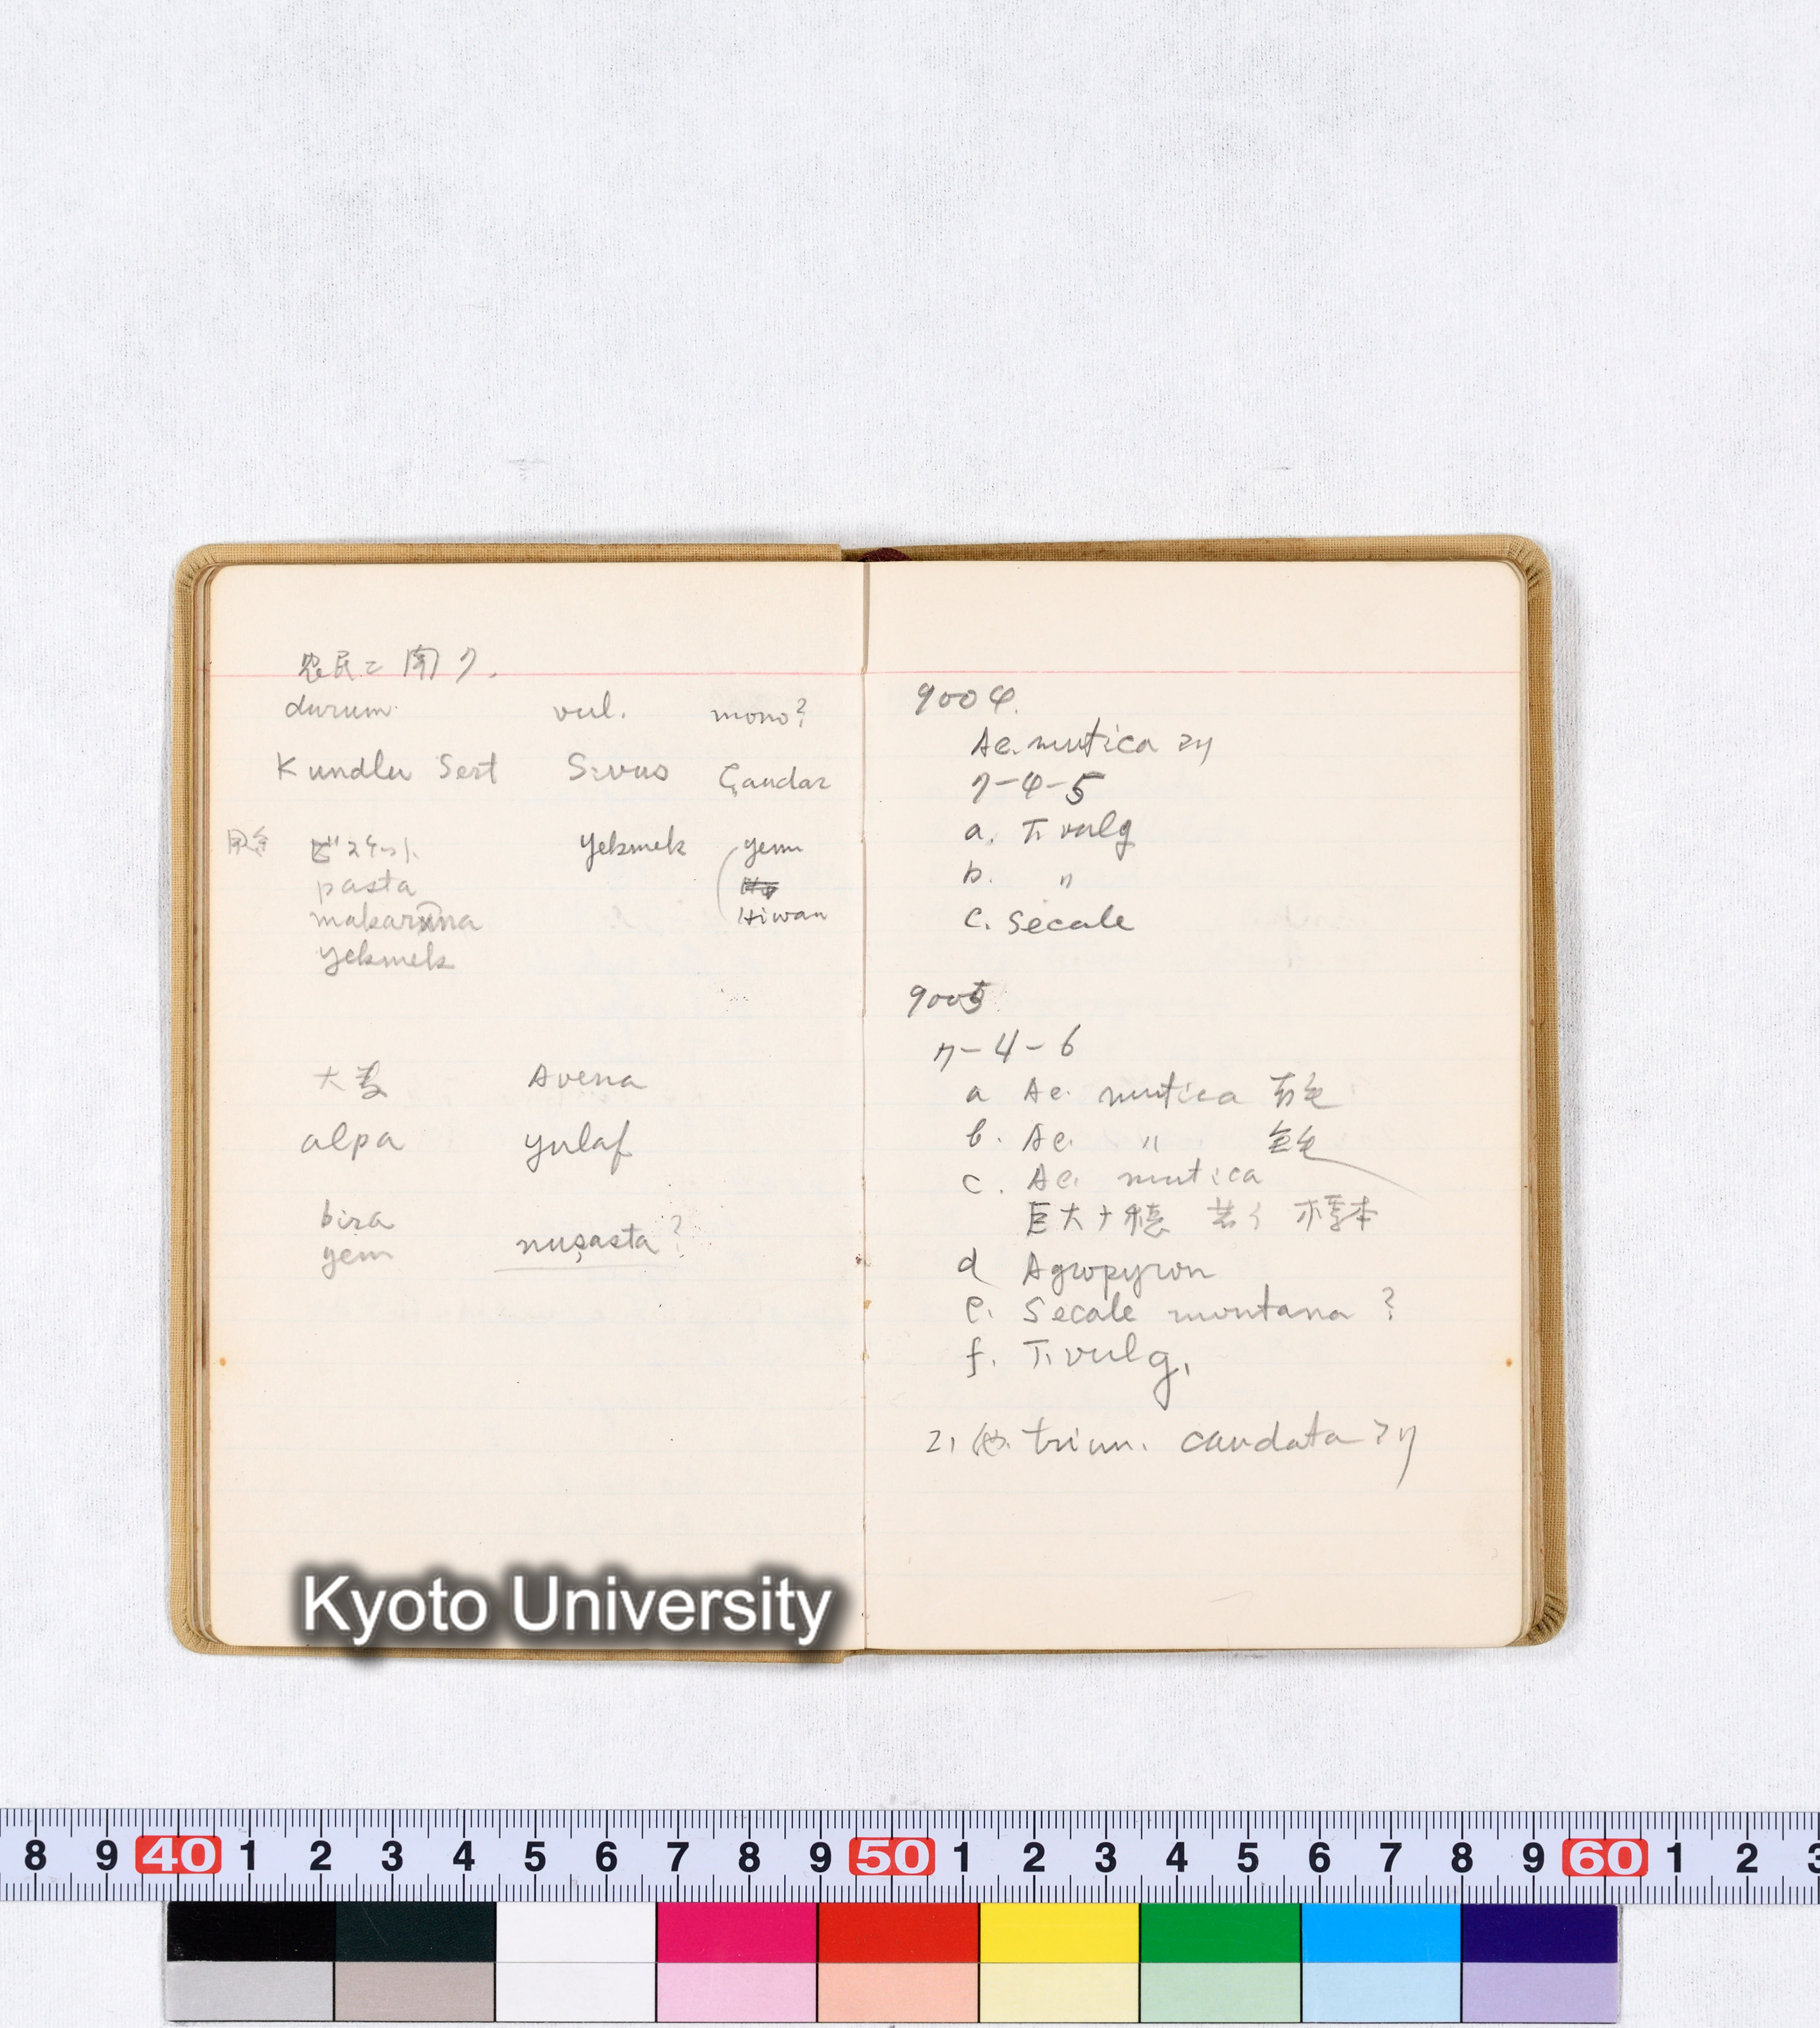 农民ニ聞ク.
durum. vul. mono?
Kundlu Sert Sivus Çaudar
用途 ビスケット yekmek yem
pasta
makaruna Hiwan
yekmek
大麦 Avena
alpa yulaf
bira
yem nuşasta?
9004.
Ae. mutica アリ
7-4-5
a. T. vulg
b. 〃
c. Secale
9005
7-4-6
a Ae. mutica
b. Ae. 〃
c. Ae. mutica
巨大ナ穂 若イ 標本
d Agropyron
e. Secale montana ?
f. T. vulg.
他 triun. caudata アリ
Kyoto University
8 9 40 1 2 3 4 5 6 7 8 9 50 1 2 3 4 5 6 7 8 9 60 1 2 3